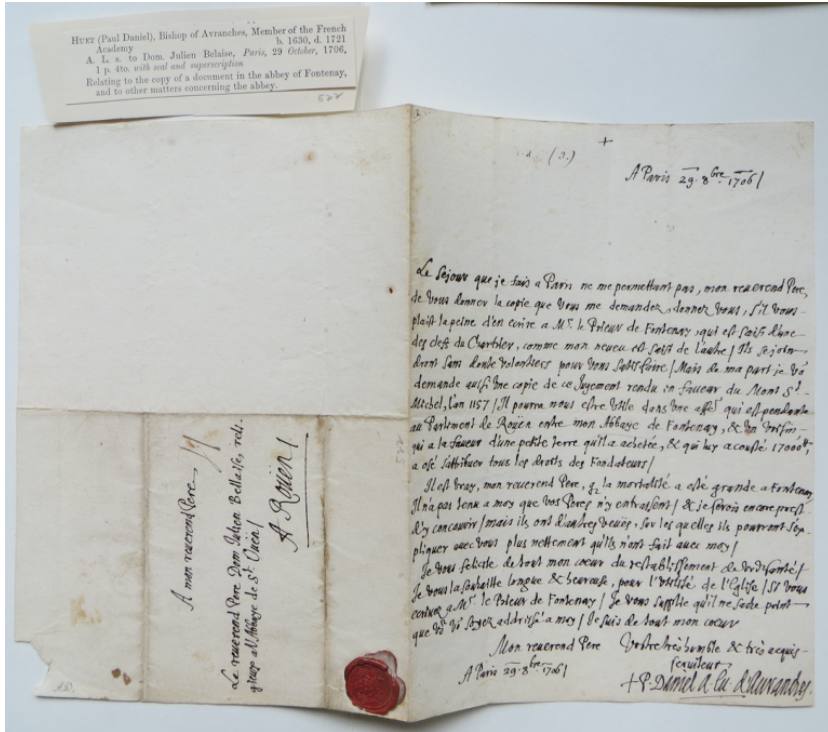 HUET (Paul Daniel), Bishop of Avranches, Member of the French
Academy b. 1630, d. 1721
A. L. s. to Dom. Julien Belaise, Paris, 29 October, 1706,
1 p. 4to. with seal and superscription
Relating to the copy of a document in the abbey of Fontenay,
and to other matters concerning the abbey.
522
(3.) +
A Paris 29. 8bre. 1706/
Le sejour que je fais a Paris ne me permettant pas, mon reuerend Pere,
de vous donner la copie que vous me demandez, donnez vous, s'il vous
plaist la peine d'en ecrire a Mr. le Prieur de Fontenay, qui est saisi d'une
des clefs du Chartrier, comme mon neueu est saisi de l'autre/ Ils se join-
dront sans doute volontiers pour vous satisfaire/ Mais de ma part je vo
demande aussi une copie de ce Jugement rendu en faueur du Mont St.
Michel, l'an 1157/ Il pourra nous estre utile dans une affre qui est pendante
au Parlement de Roüen entre mon Abbaye de Fontenay, & un voisin
qui a la faueur d'une petite terre qu'il a achetée, & qui luy a cousté 17000tt,
a osé s'attribuer tous les droits des Fondateurs/
Il est vray, mon reuerend Pere, q la mortalité a esté grande a Fontenay
Il n'a pas tenu a moy que vos Peres n'y entrassent/ & je serois encore prest
d'y concourir/ mais ils ont d'autres veües, sur les quelles ils pourront s'ex-
pliquer auec vous plus nettement qu'ils n'ont fait auec moy/
Je vous felicite de tout mon coeur du restablissement de vre santé/
Je vous la souhaitte longue & heureuse, pour l'utilité de l'Eglise/ Si vous
ecriuez a Mr. le Prieur de Fontenay/ Je vous supplie qu'il ne sache point
que vo vo soyez addressé a moy/ Je suis de tout mon coeur
Mon reuerend Pere Vostre tres humble & tres acquis
seruiteur
A Paris 29. 8bre. 1706/
+ P. Daniel a. Eu. d'Auranches
A mon reuerend Pere
Le reuerend Pere Dom Julien Bellaise, reli-
gieux a l'Abbaye de St. Oüen/
A Roüen/
522